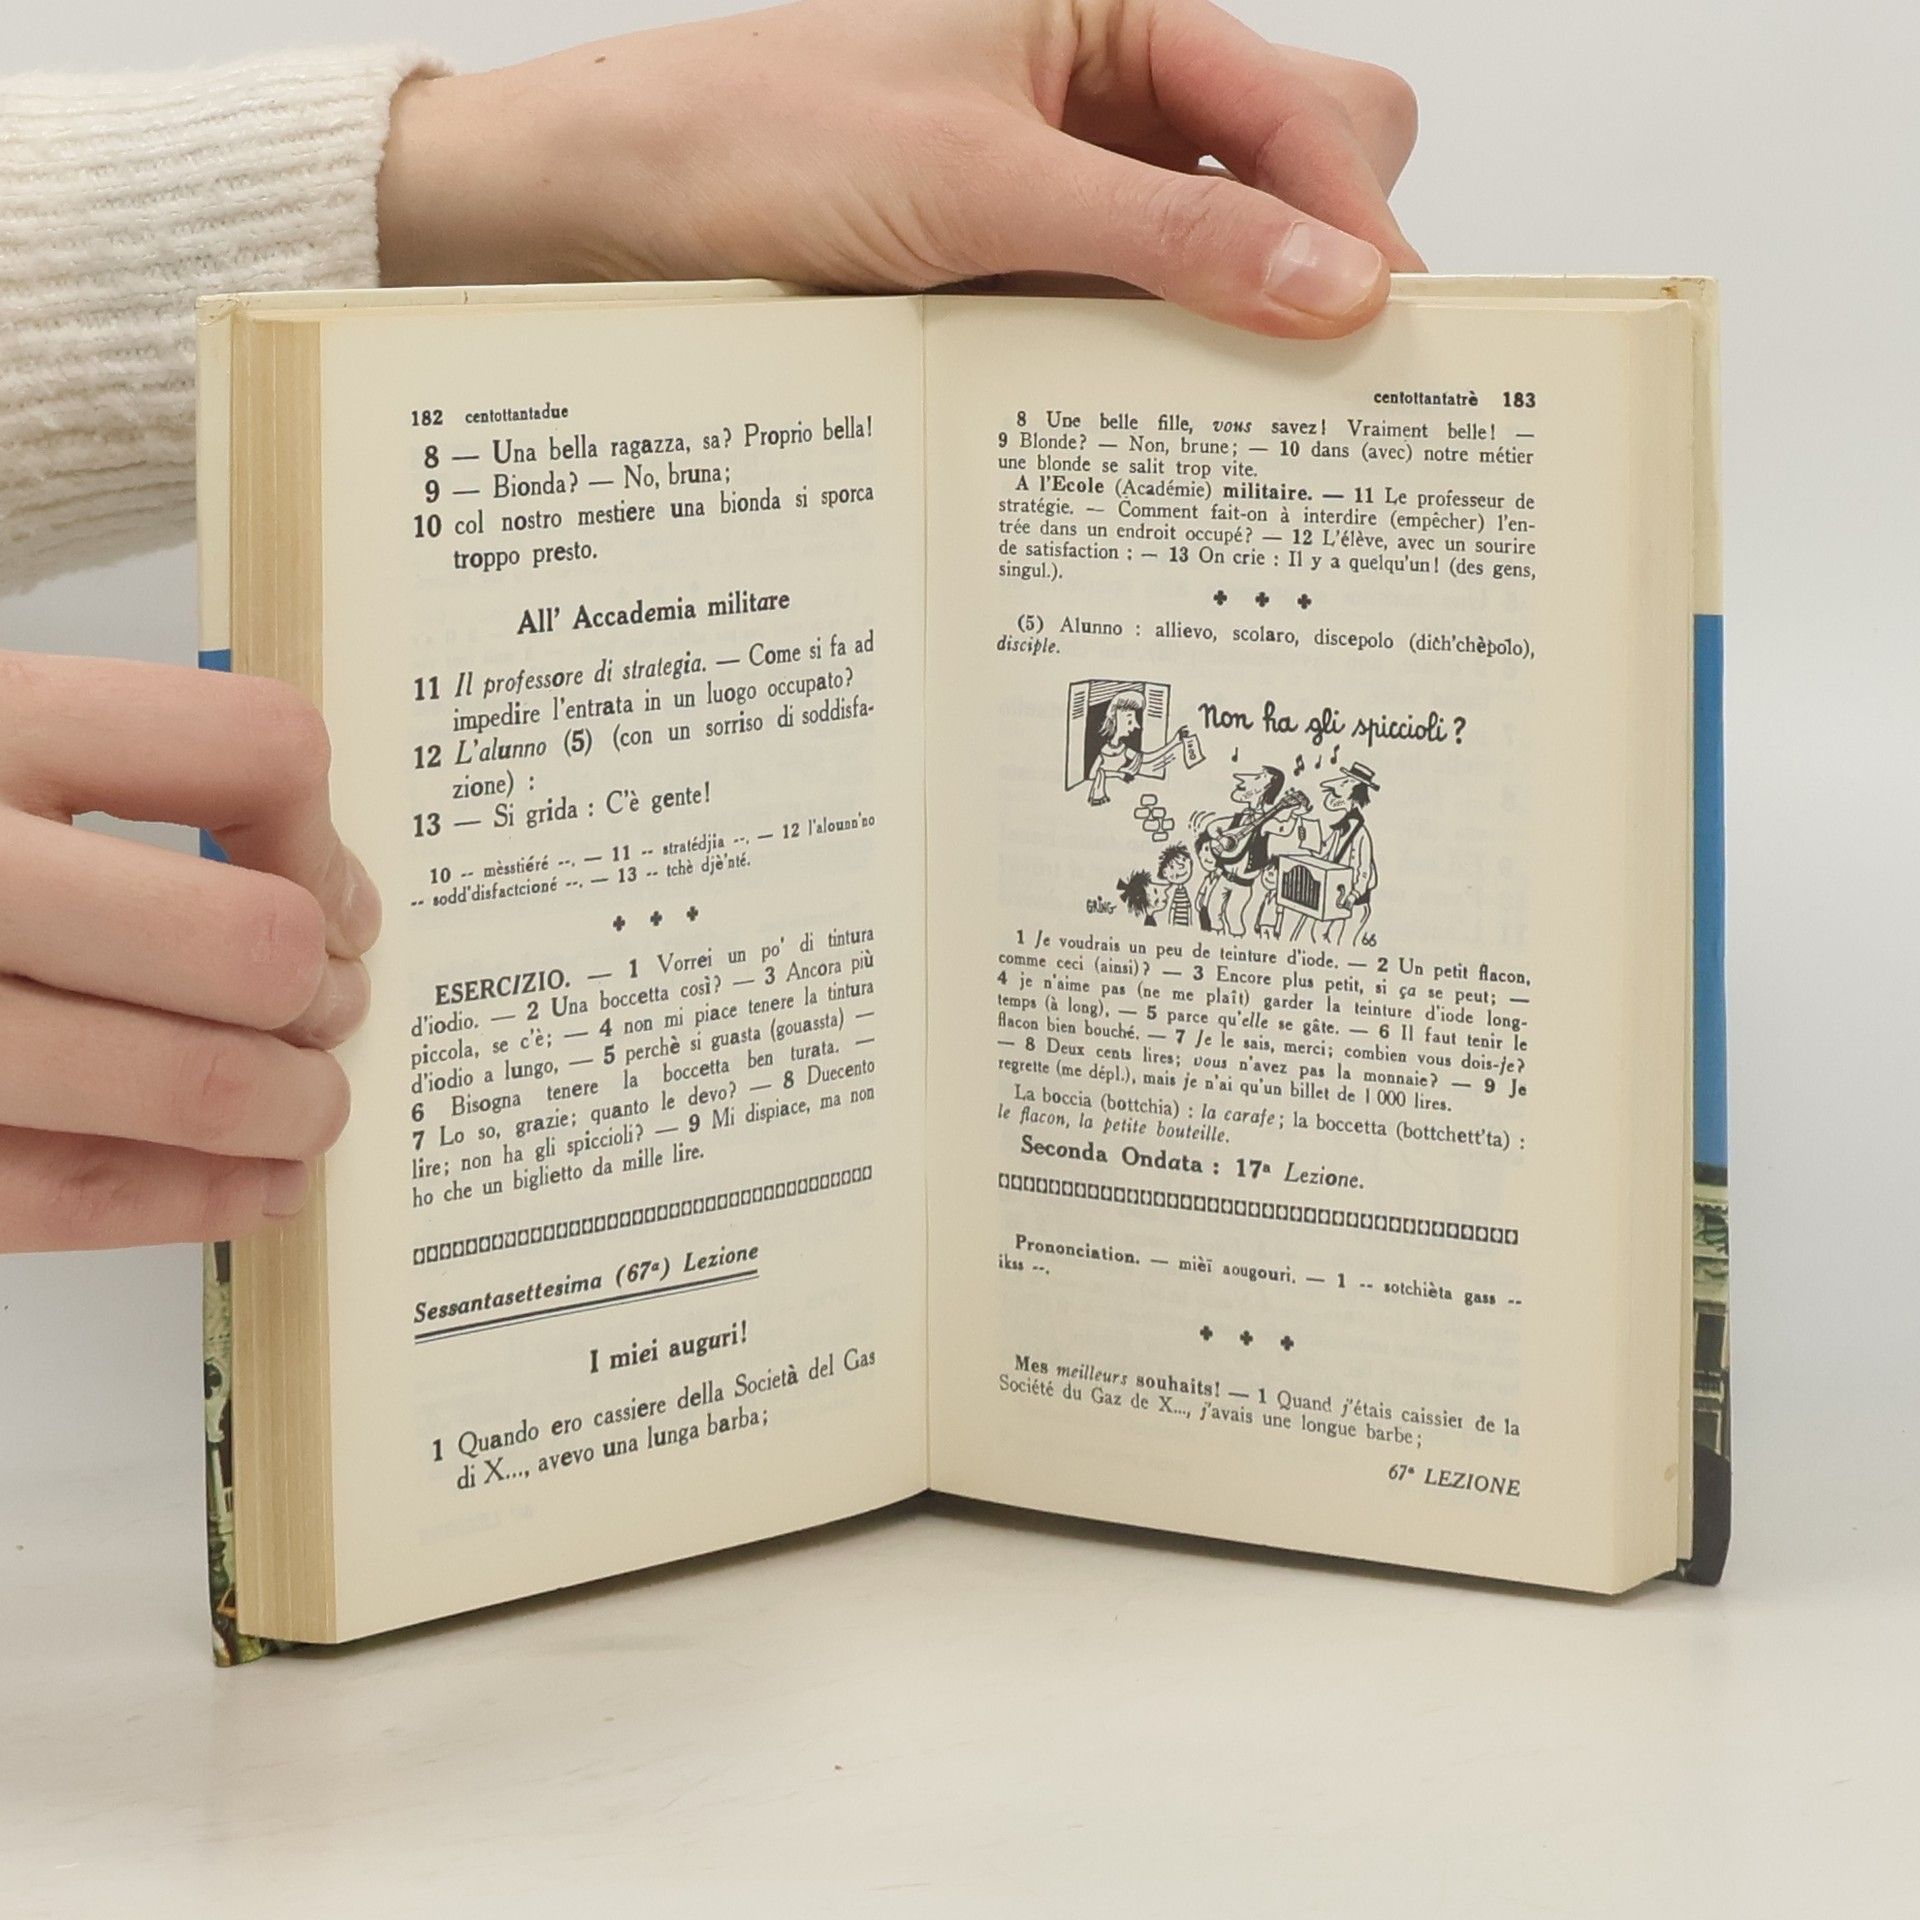 182 centottantadue
8 — Una bella ragazza, sa? Proprio bella!
9 — Bionda? — No, bruna;
10 col nostro mestiere una bionda si sporca
troppo presto.
All' Accademia militare
11 Il professore di strategia. — Come si fa ad
impedire l'entrata in un luogo occupato?
12 L'alunno (5) (con un sorriso di soddisfa-
zione) :
13 — Si grida : C'è gente!
10 -- mèsstiéré --. — 11 -- stratédjia --. — 12 l'alounn'no
-- sodd'disfactcioné --. — 13 -- tchè djè'nté.
ESERCIZIO. — 1 Vorrei un po' di tintura
d'iodio. — 2 Una boccetta così? — 3 Ancora più
piccola, se c'è; — 4 non mi piace tenere la tintura
d'iodio a lungo, — 5 perchè si guasta (gouassta) —
6 Bisogna tenere la boccetta ben turata. —
7 Lo so, grazie; quanto le devo? — 8 Duecento
lire; non ha gli spiccioli? — 9 Mi dispiace, ma non
ho che un biglietto da mille lire.
Sessantasettesima (67ª) Lezione
I miei auguri!
1 Quando ero cassiere della Società del Gas
di X..., avevo una lunga barba;
centottantatrè 183
8 Une belle fille, vous savez! Vraiment belle! —
9 Blonde? — Non, brune; — 10 dans (avec) notre métier
une blonde se salit trop vite.
A l'Ecole (Académie) militaire. — 11 Le professeur de
stratégie. — Comment fait-on à interdire (empêcher) l'en-
trée dans un endroit occupé? — 12 L'élève, avec un sourire
de satisfaction : — 13 On crie : Il y a quelqu'un! (des gens,
singul.).
(5) Alunno : allievo, scolaro, discepolo (dich'chèpolo),
disciple.
Non ha gli spiccioli?
GRING
66
1 Je voudrais un peu de teinture d'iode. — 2 Un petit flacon,
comme ceci (ainsi)? — 3 Encore plus petit, si ça se peut; —
4 je n'aime pas (ne me plaît) garder la teinture d'iode long-
temps (à long), — 5 parce qu'elle se gâte. — 6 Il faut tenir le
flacon bien bouché. — 7 Je le sais, merci; combien vous dois-je?
— 8 Deux cents lires; vous n'avez pas la monnaie? — 9 Je
regrette (me dépl.), mais je n'ai qu'un billet de 1 000 lires.
La boccia (bottchia) : la carafe; la boccetta (bottchett'ta) :
le flacon, la petite bouteille.
Seconda Ondata : 17ª Lezione.
Prononciation. — mièï aougouri. — 1 -- sotchièta gass --
ikss --.
Mes meilleurs souhaits! — 1 Quand j'étais caissier de la
Société du Gaz de X..., j'avais une longue barbe;
67ª LEZIONE